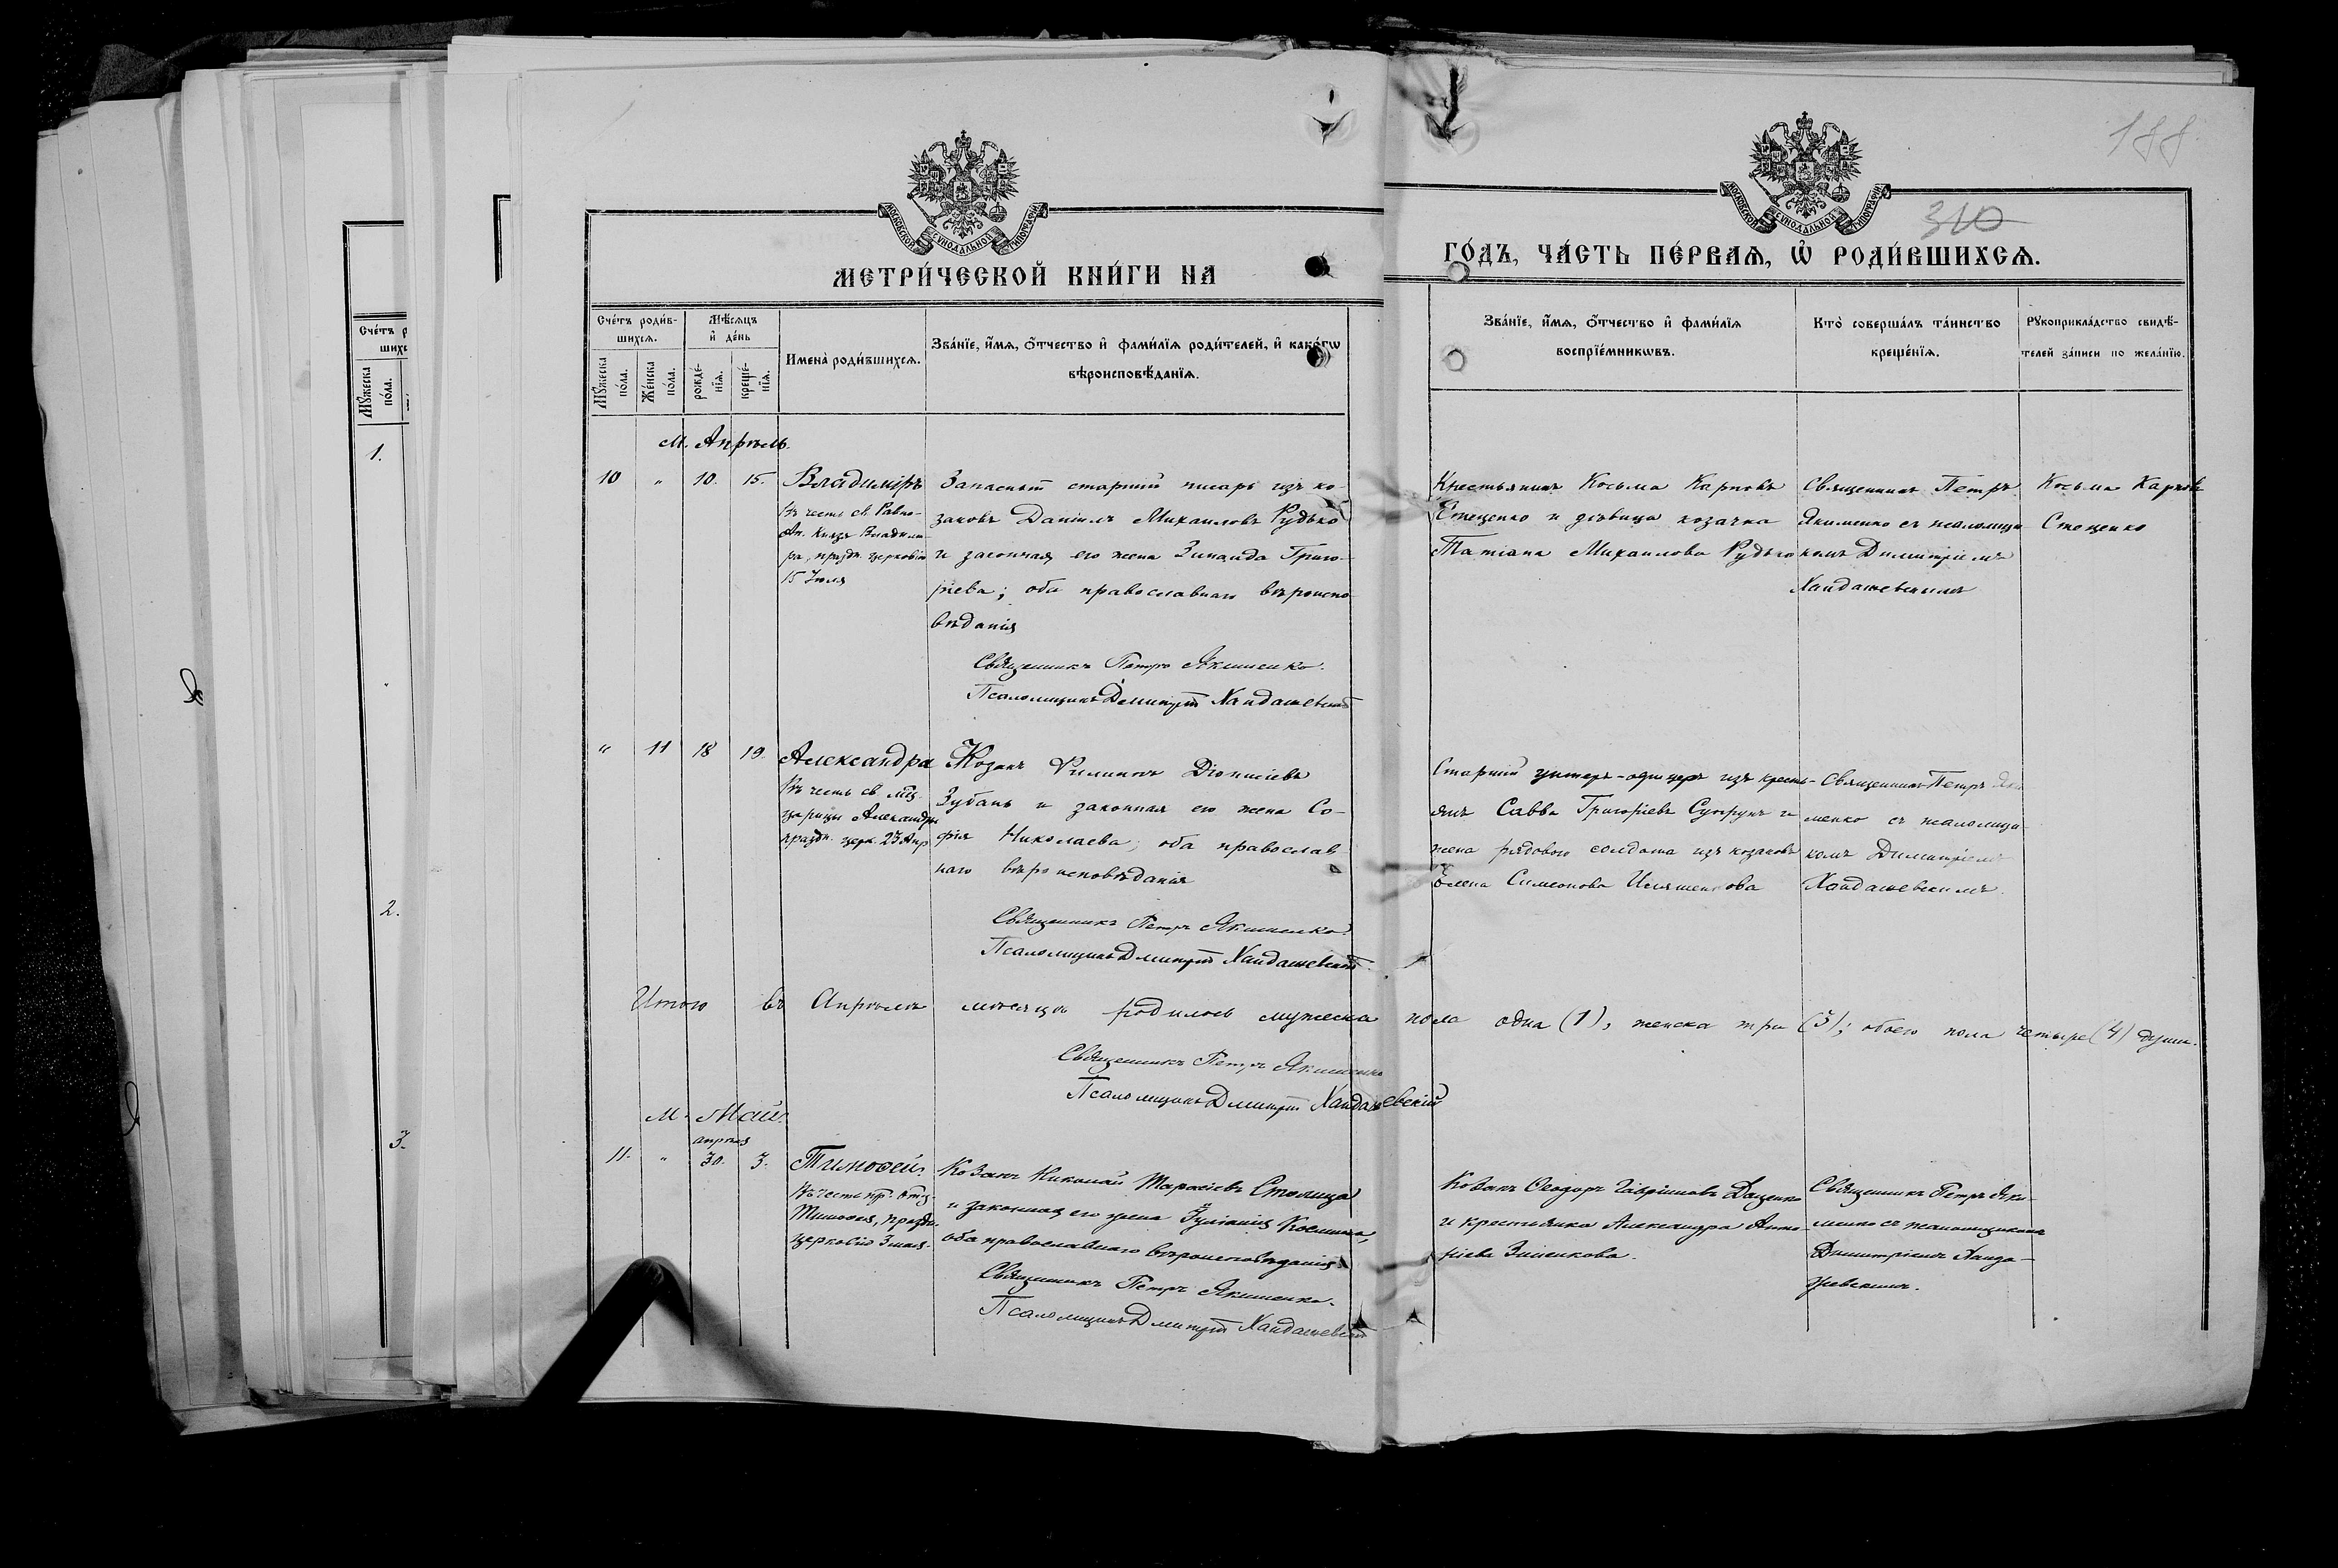 188
310
МОСКОВСКОЙ СѴНОДАЛЬНОЙ ТИПОГРАФІИ
МОСКОВСКОЙ СѴНОДАЛЬНОЙ ТИПОГРАФІИ
МЕТРИ́ЧЕСКОЙ КНИ́ГИ НА
ГО́ДЪ, ЧА́СТЬ ПЕ́РВАѦ, Ѡ҆ РОДИ́ВШИХСѦ.
Сче́тъ роди́в-
шихсѧ.
Мꙋ́жеска
по́ла.
Же́нска
по́ла.
Мѣ́сѧцъ
и҆ де́нь
рожде́-
нїѧ.
креще́-
нїѧ.
Имена̀ роди́вшихсѧ.
Зва́нїе, и҆́мѧ, ѻ҆́тчество и҆ фами́лїѧ роди́телей, и҆ како́гѡ
вѣроисповѣ́данїѧ.
Зва́нїе, и҆́мѧ, ѻ҆́тчество и҆ фами́лїѧ
воспрїе́мникѡвъ.
Кто̀ соверша́лъ та́инство
креще́нїѧ.
Рꙋкоприкла́дство свидѣ́-
телей за́писи по жела́нїю.
Мꙋ́жеска
по́ла.
1.
2.
3.
М. Апрѣль.
10 " 10. 15. Владиміръ
Въ честь св. Равно-
Ап. Князя Владими-
ра, праздн. церковію
15 Іюля
Запасный старшій писарь изъ ко-
заковъ Даніилъ Михаиловъ Рудько
и законная его жена Зинаида Григо-
ріева; оба православнаго вѣроиспо-
вѣданія
Священникъ Петръ Якименко.
Псаломщикъ Димитрій Хандажевскій
Крестьянинъ Косьма Карповъ
Стеценко и дѣвица козачка
Татіана Михаилова Рудько
Священникъ Петръ
Якименко съ псаломщи-
комъ Димитріемъ
Хандажевскимъ
Косьма Карповъ
Стеценко
" 11 18 19. Александра
Въ честь св. мц.
царицы Александры
праздн. церк. 23 Апр
Козакъ Филиппъ Діонисіевъ
Зубань и законная его жена Со-
фія Николаева; оба православ-
наго вѣроисповѣданія
Священникъ Петръ Якименко.
Псаломщикъ Димитрій Хандажевскій
Старшій унтеръ-офицеръ изъ кресть-
янъ Савва Григоріевъ Супрунъ и
жена рядового солдата изъ козаковъ
Елена Симеонова
Священникъ Петръ Яки
менко съ псаломщи-
комъ Димитріемъ
Хандажевскимъ.
Итого въ Апрѣлѣ мѣсяцѣ родилось мужеска пола одна (1), женска три (3); обоего пола четыре (4) души.
Священникъ Петръ Якименко
Псаломщикъ Димитрій Хандажевскій
М. Май.
апрѣля
11. " 30. 3. Тимофей.
Въ честь пр. отца
Тимофея, праздн.
церковію 3 мая.
Козакъ Николай Тарасіевъ Столица
и законная его жена Іуліанія Космина,
оба православнаго вѣроисповѣданія.
Священникъ Петръ Якименко.
Псаломщикъ Димитрій Хандажевскій
Козакъ Ѳеодоръ Гавріиловъ Даценко
и крестьянка Александра Анто-
ніева Зиненкова.
Священникъ Петръ Яки-
менко съ псаломщикомъ
Димитріемъ Ханда-
жевскимъ.